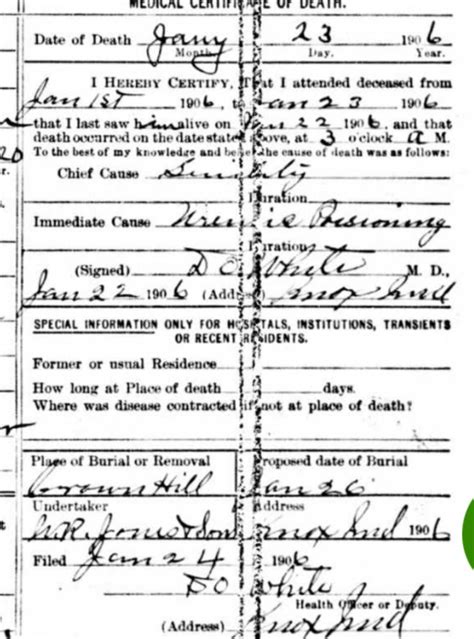 MEDICAL CERTIFICATE OF DEATH.
Date of Death Jany 23 1906
Month. Day. Year.
I HEREBY CERTIFY, That I attended deceased from
Jan 1st 1906, to Jan 23 1906
that I last saw him alive on Jan 22 1906, and that
death occurred on the date stated above, at 3 o'clock A M.
To the best of my knowledge and belief the cause of death was as follows:
Chief Cause Senility
Duration
Immediate Cause Uremic Poisioning
Duration
(Signed) D O White M. D.,
Jan 22 1906 (Address) Knox Ind
SPECIAL INFORMATION ONLY FOR HOSPITALS, INSTITUTIONS, TRANSIENTS
OR RECENT RESIDENTS.
Former or usual Residence
How long at Place of death days.
Where was disease contracted if not at place of death?
Place of Burial or Removal Proposed date of Burial
Crown Hill Jan 26
Undertaker Address
Jones & Son Knox Ind 1906
Filed Jan 24 1906
D O White
Health Officer or Deputy.
(Address) Knox Ind